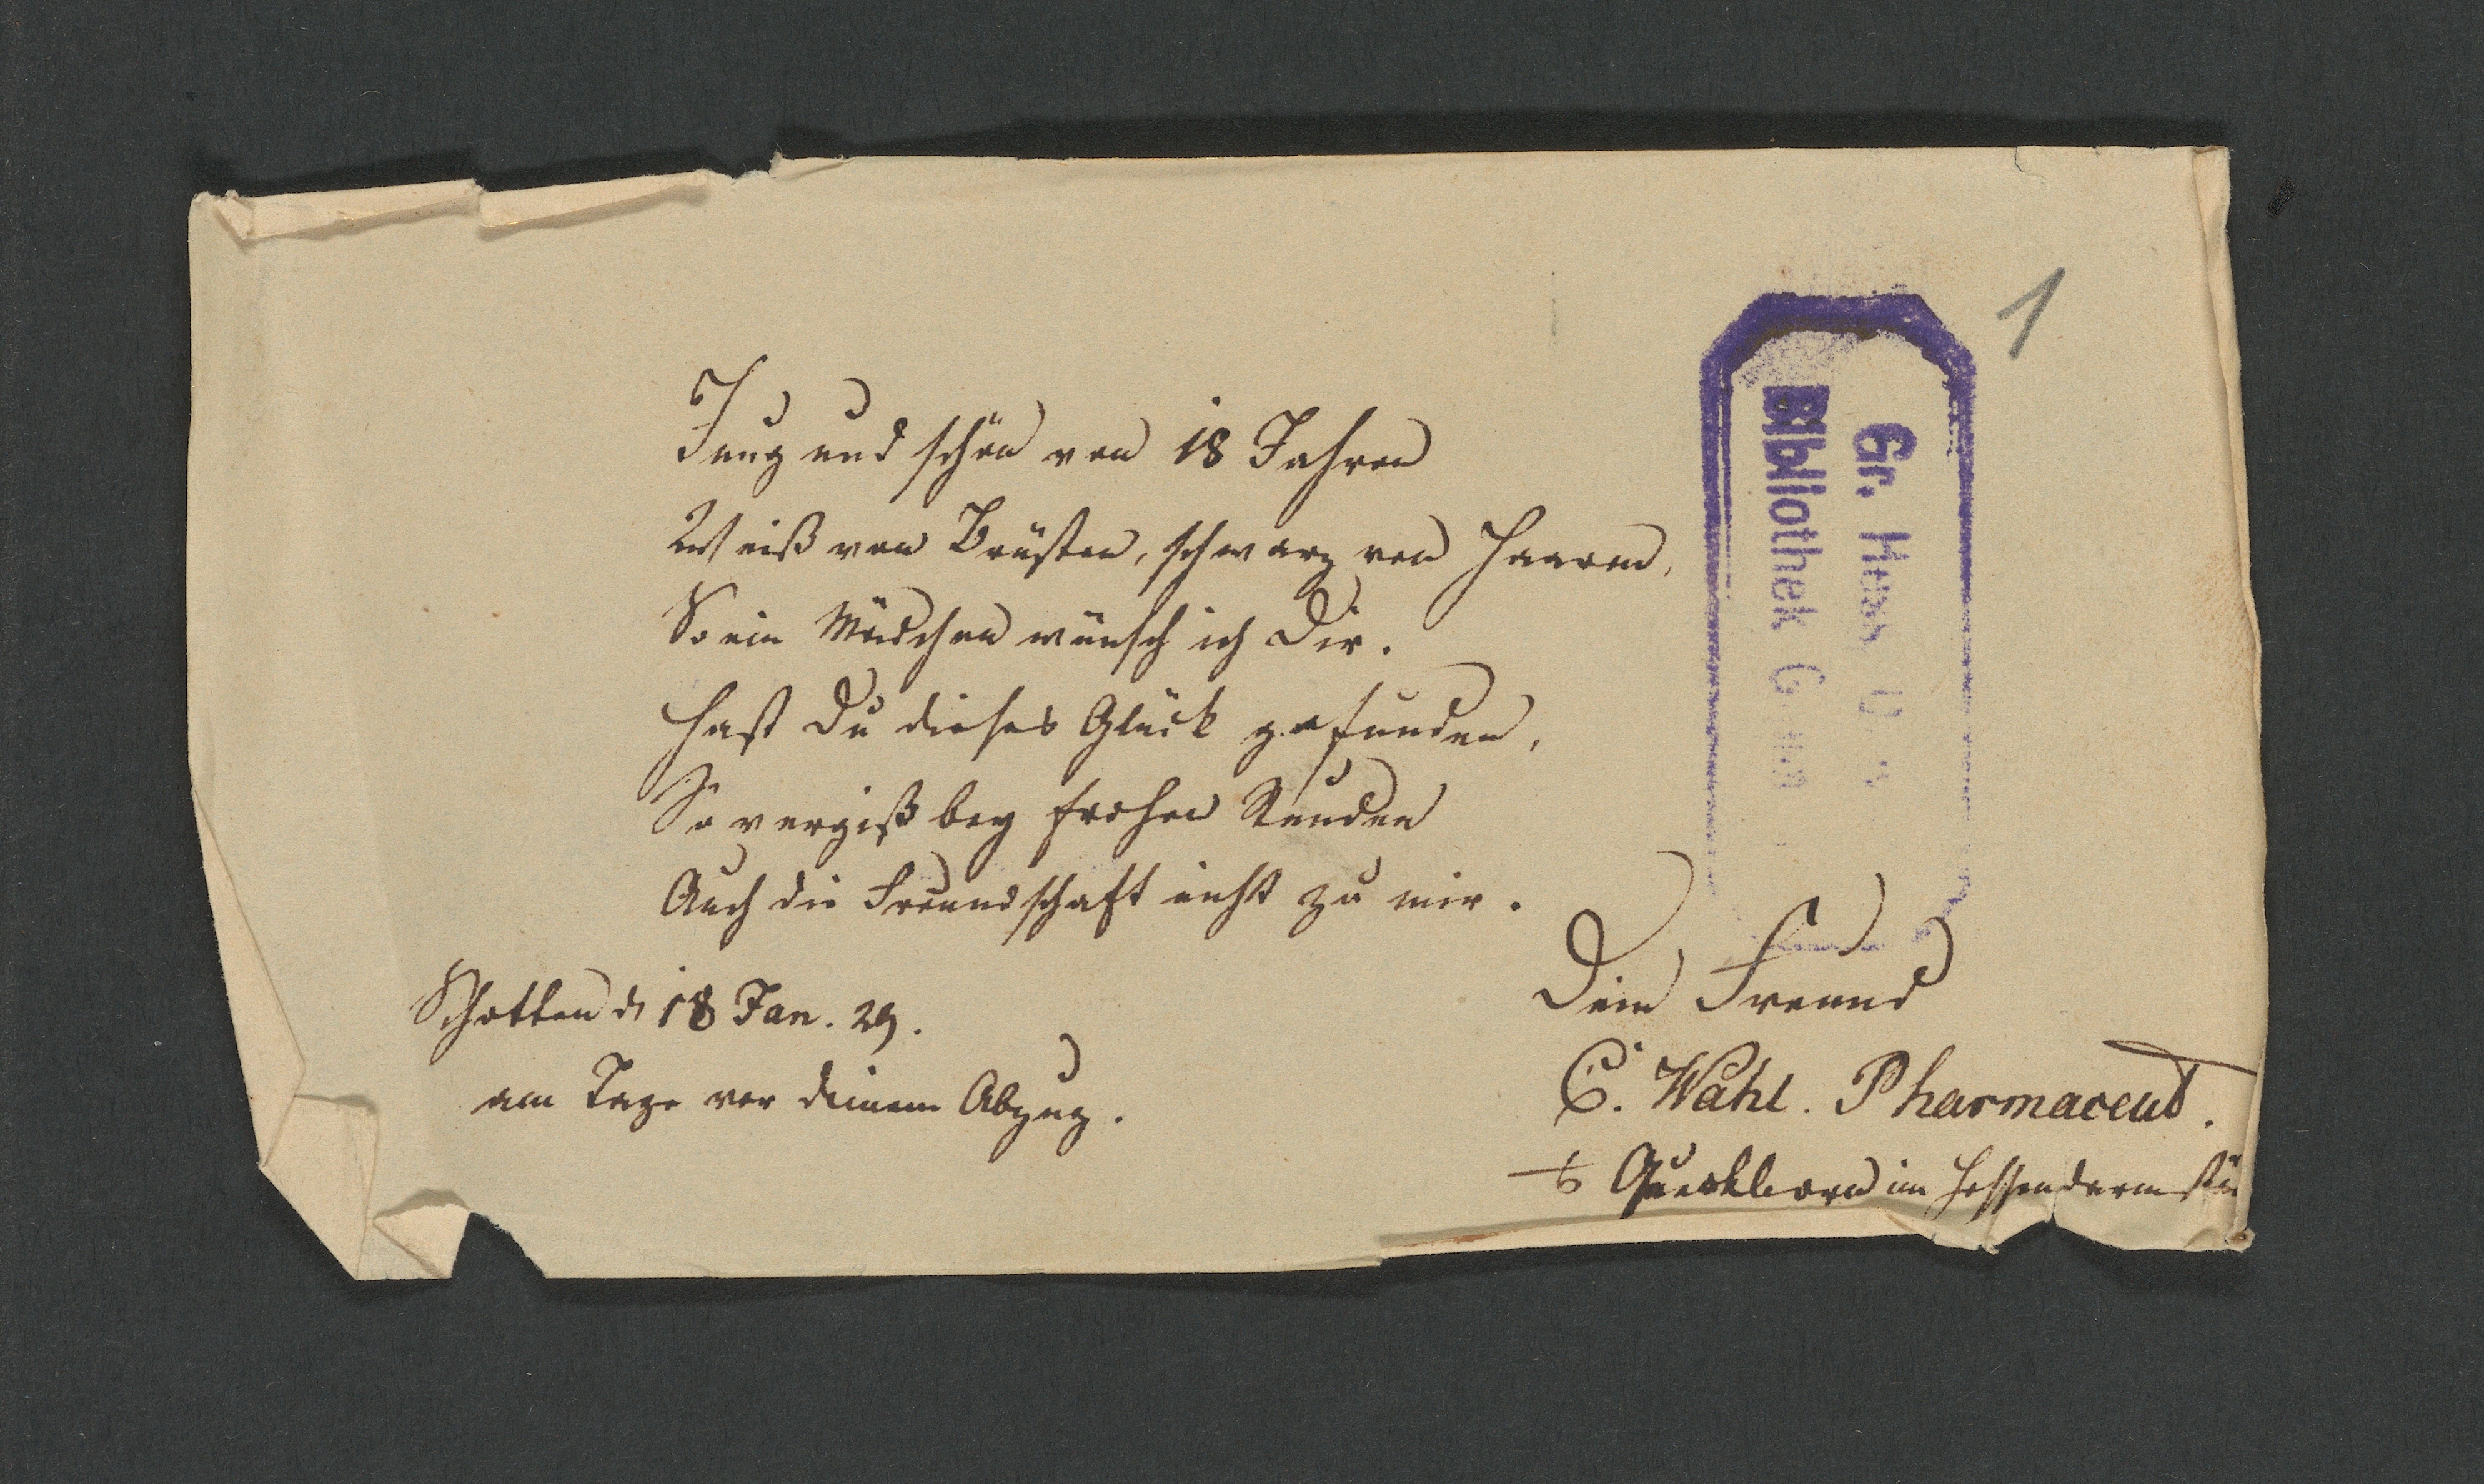 1
Gr. Hess. U
Bibliothek G
Jung und schön von 18 Jahren
Weiß von Brüsten, schwarz von Haaren,
So ein Mädchen wünsch ich Dir.
Hast Du dieses Glück gefunden,
So vergiß bey frohen Stunden
Auch die Freundschaft nicht zu mir.
Schotten d 18 Jan. 29.
am Tage vor deinem Abzug.
Dein Freund
C. Wahl. Pharmaceut.
Queckborn im Hessendarmstä